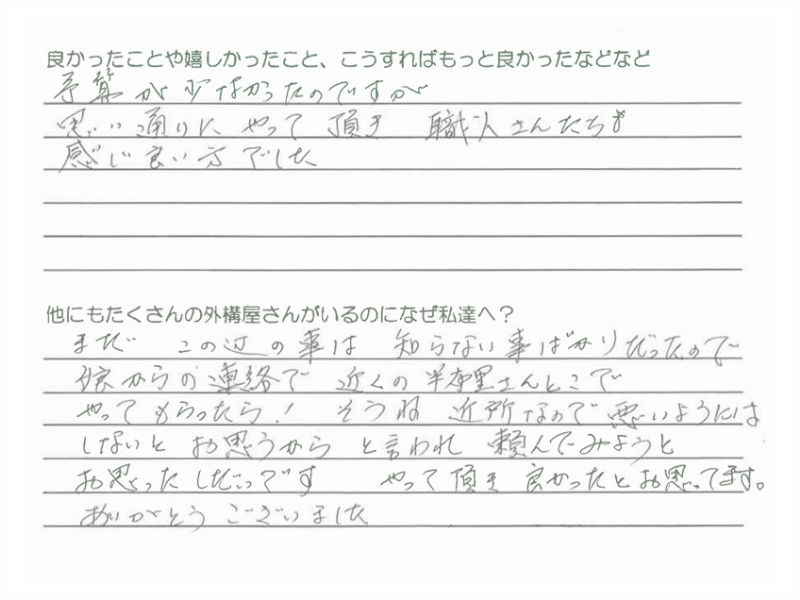 良かったことや嬉しかったこと、こうすればもっと良かったなどなど
予算が少なかったのですが
思い通りに やって 頂き 職人さんたちも
感じ良い方でした
他にもたくさんの外構屋さんがいるのになぜ私達へ？
まだ この辺の事は 知らない事ばかりだったので
嫁からの連絡で 近くの さんとこで
やってもらったら！ そうね 近所なので悪いようには
しないとお思うから と言われ 頼んでみようと
お思ったしだいです やって頂き 良かったとお思ってます。
ありがとうございました